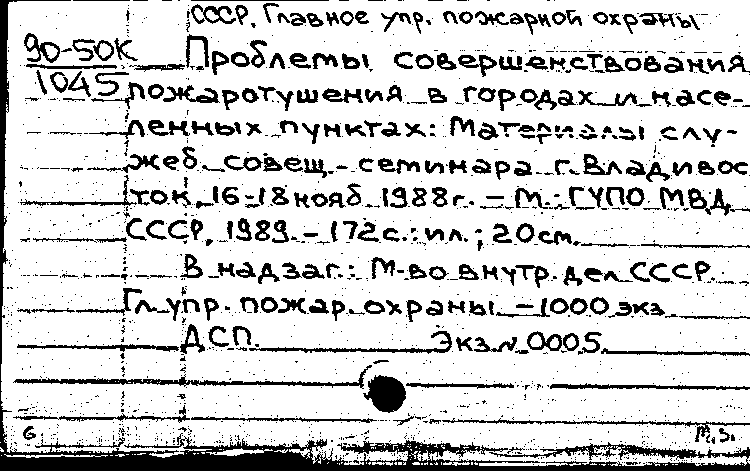 СССР. Главное упр. пожарной охраны
90-50К
1045
Проблемы совершенствования
пожаротушения в городах и насе-
ленных пунктах: Материалы слу-
жеб. совещ.-семинара г. Владивос
ток, 16-18 нояб 1988г. - М.: ГУПО МВД
СССР, 1989. - 172с.: ил.; 20см.
В надзаг.: М-во внутр. дел СССР.
Гл упр. пожар. охраны. - 1000 экз.
ДСП. Экз. N 0005.
6